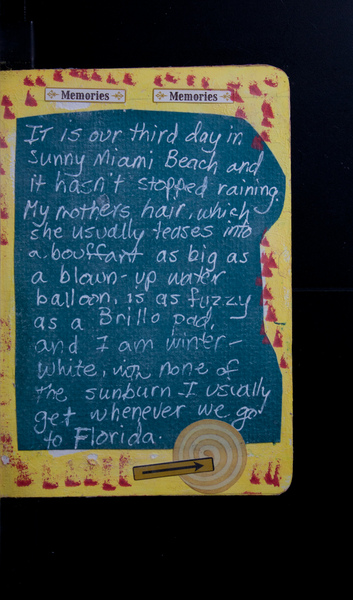 Memories Memories
It is our third day in
sunny Miami Beach and
it hasn't stopped raining.
My mothers hair, which
she usually teases into
a bouffant as big as
a blown-up water
balloon, is as fuzzy
as a Brillo pad,
and I am winter-
white, none of
the sunburn I usually
get whenever we go
to Florida.